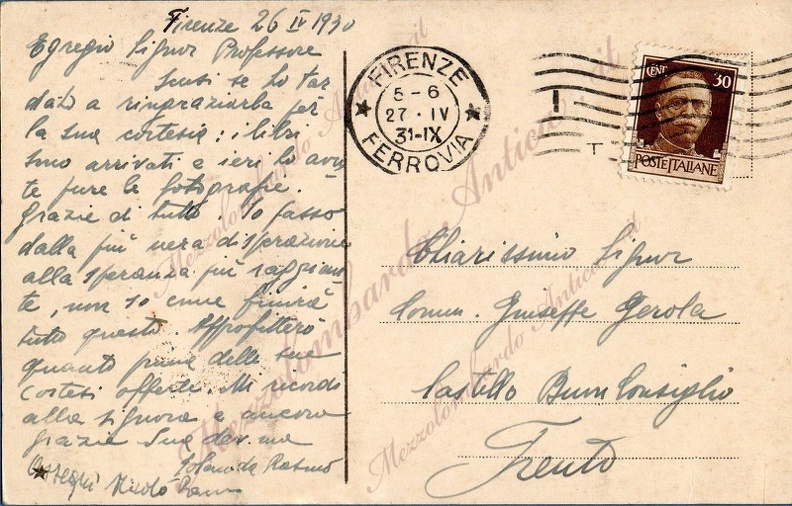 Firenze 26 IV 1930
Egregio Signor Professore
Scusi se ho tar
dato a ringraziarla per
la sua cortesia: i libri
sono arrivati e ieri ho avu
te pure le fotografie.
Grazie di tutto. Io passo
dalla più nera disperazione
alla speranza più raggian
te, non so come finirà
tutto questo. Approfitterò
quanto prima delle sue
cortesi offerte. Mi ricordi
alla signora e ancora
grazie Sua dev.ma
Iolanda
Ossequi Nicolò
FIRENZE
5-6
27·IV
31-IX
FERROVIA
CENT. 30
POSTE ITALIANE
Chiarissimo Signor
Comm. Giuseppe Gerola
Castello Buon Consiglio
Trento
Mezzolombardo Antica.it
Mezzolombardo Antica.it
Mezzolombardo Antica.it